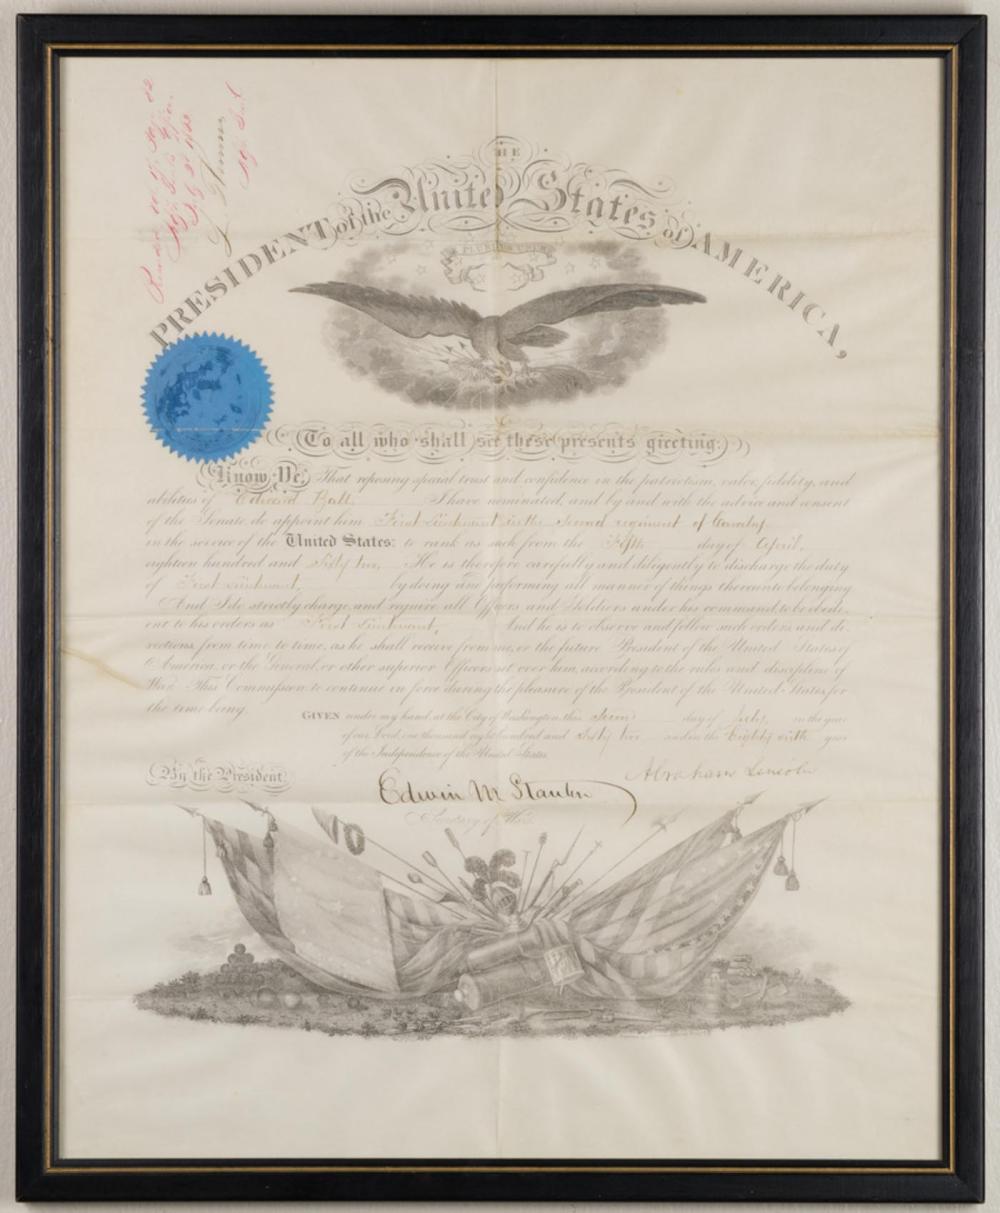 THE
PRESIDENT of the United States of AMERICA,
E PLURIBUS UNUM
To all who shall see these presents greeting:
Know Ye, That reposing special trust and confidence in the patriotism, valor, fidelity, and
abilities of Edward Ball I have nominated, and by and with the advice and consent
of the Senate, do appoint him First Lieutenant in the Second regiment of Cavalry
in the service of the United States: to rank as such from the Fifth day of April,
eighteen hundred and Sixty two, He is therefore carefully and diligently to discharge the duty
of First Lieutenant, by doing and performing all manner of things thereunto belonging
And I do strictly charge, and require all Officers and Soldiers under his command, to be obedi-
ent to his orders as First Lieutenant, And he is to observe and follow such orders, and di-
rections, from time to time, as he shall receive from me, or the future President of the United States of
America, or the General, or other superior Officers set over him, according to the rules and discipline of
War. This Commission to continue in force during the pleasure of the President of the United States, for
the time being.
GIVEN under my hand, at the City of Washington, this day of July, in the year
of our Lord, one thousand eight hundred and Sixty two and in the Eighty sixth year
of the Independence of the United States
By the President
Abraham Lincoln
Edwin M Stanton
Secretary of War.